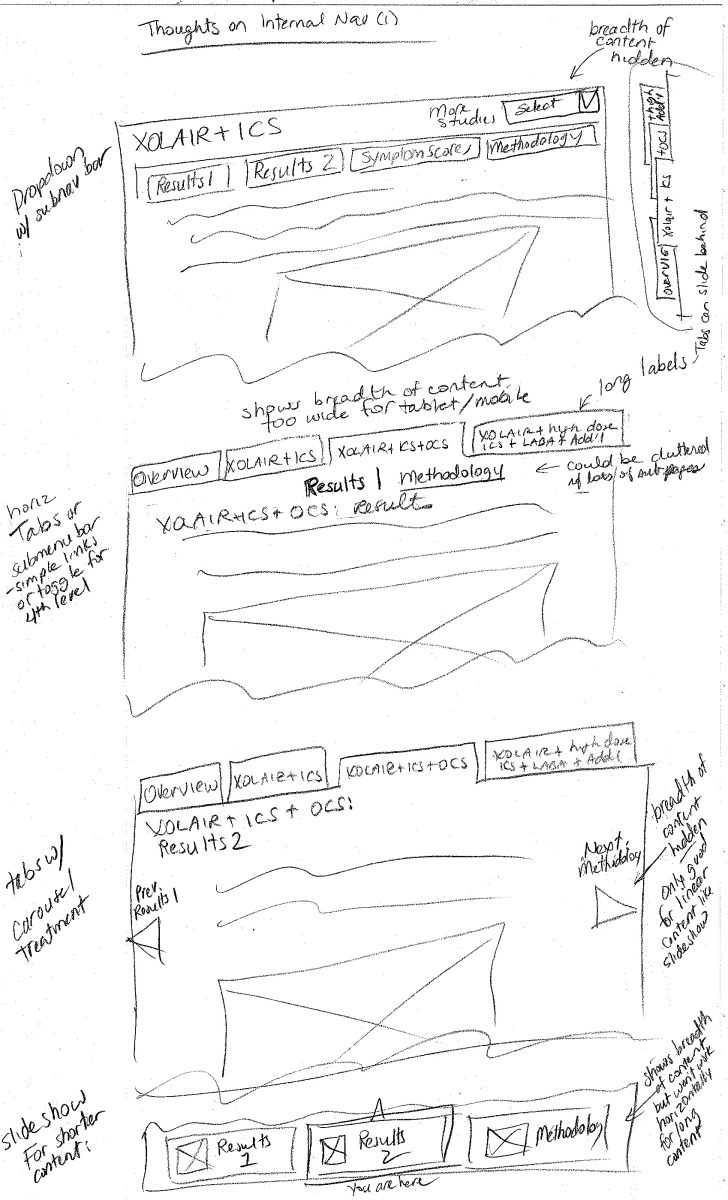 Thoughts on Internal Nav (1)
breadth of
content
hidden
More
studies
Select
XOLAIR + ICS
Results 1
Results 2
Symptom Scores
Methodology
Dropdown
w/ subnav bar
overview
Xolair + ICS
+OCS
+high
Add'l
Tabs can slide behind
shows breadth of content
too wide for tablet/mobile
long labels
Overview
XOLAIR+ICS
XOLAIR+ICS+OCS
XOLAIR + high dose
ICS + LABA + Add'l
Results | Methodology
could be cluttered
if lots of subpages
XOLAIR+ICS+OCS: Result
horiz
Tabs or
submenu bar
-simple links
or toggle for
4th level
Overview
XOLAIR+ICS
XOLAIR+ICS+OCS
XOLAIR + high dose
ICS + LABA + Add'l
XOLAIR + ICS + OCS:
Results 2
Next:
Methodology
Prev:
Results 1
tabs w/
carousel
Treatment
breadth of
content
hidden
only good
for linear
content like
slideshow
slideshow
For shorter
content:
Results
1
Results
2
Methodology
You are here
shows breadth
of content
but won't work
horizontally
for long
content